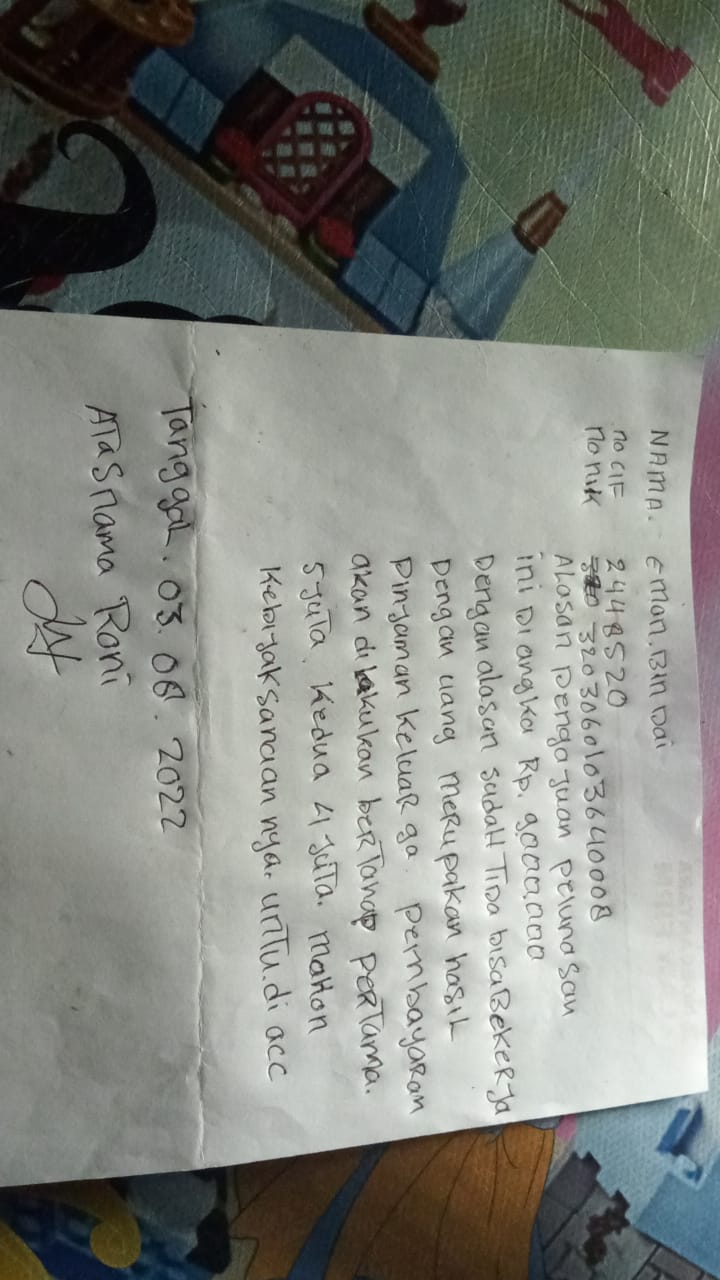 NAMA. Eman. Bin Dai
no CIF 2448520
no nik 3203060103640008
Alasan Pengajuan pelunasan
ini Di angka Rp. 9000.000
Dengan alasan sudaH TiDa bisa BekeRja
Dengan uang merupakan hasil
Pinjaman keluarga. pembayaran
akan dilakukan berTahap perTama.
5 juTa. Kedua 4 juTa. maHon
Kebijaksanaan nya. unTu. di acc
Tanggal. 03. 08. 2022
ATaSnama Roni